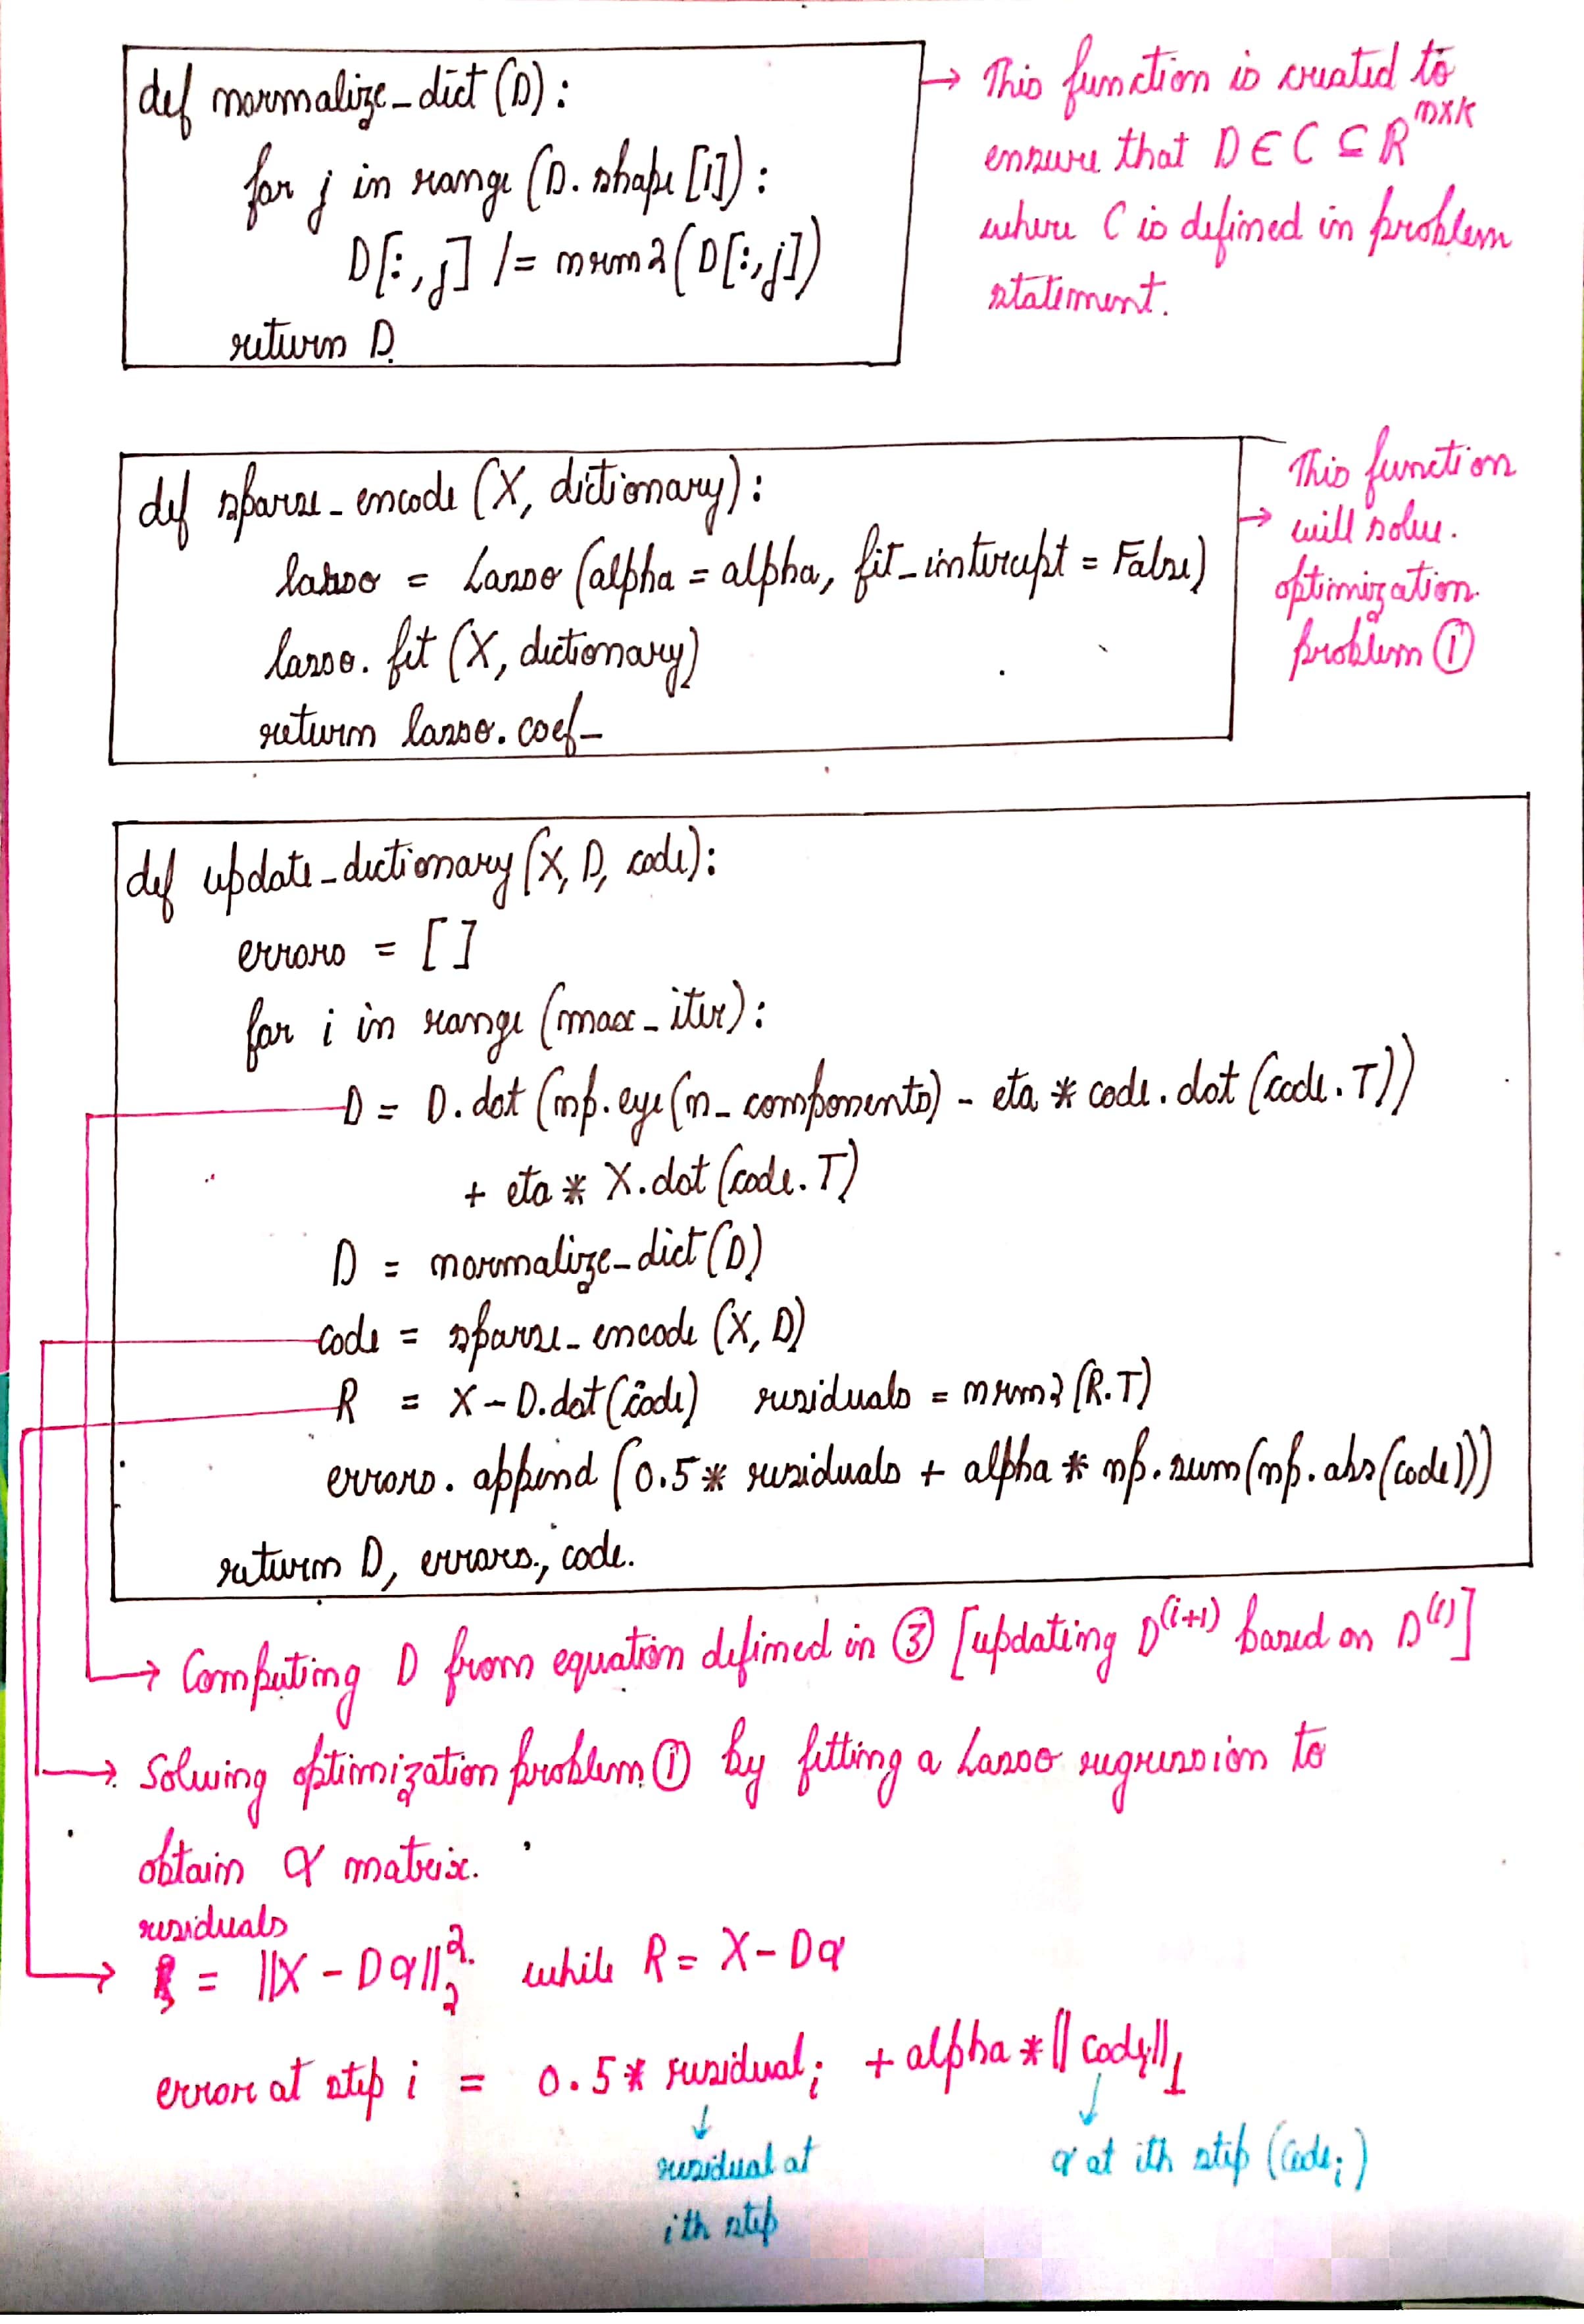 def normalize_dict (D) :
for j in range (D. shape [1]) :
D[:,j] /= nrm2(D[:,j])
return D.
→ This function is created to
ensure that D ∈ C ⊆ R^mxk
where C is defined in problem
statement.
def sparse_encode (X, dictionary) :
lasso = Lasso (alpha = alpha, fit_intercept = False)
lasso. fit (X, dictionary)
return lasso. coef_
→ This function
will solve.
optimization
problem ①
def update_dictionary (X, D, code) :
errors = [ ]
for i in range (max_iter) :
D = D. dot (np. eye (n_components) - eta * code. dot (code. T))
+ eta * X. dot (code. T)
D = normalize_dict (D)
code = sparse_encode (X, D)
R = X - D.dot (code) residuals = nrm2 (R.T)
errors. append (0.5 * residuals + alpha * np. sum (np. abs (code)))
return D, errors, code.
→ Computing D from equation defined in ③ [updating D^(i+1) based on D^(i)]
→ Solving optimization problem ① by fitting a Lasso regression to
obtain α matrix.
residuals
→ = ||X - Dα||₂². while R = X - Dα
error at step i = 0.5 * residual_i + alpha * || code_i ||₁
↓ residual at
ith step
↓ α at ith step (code_i)